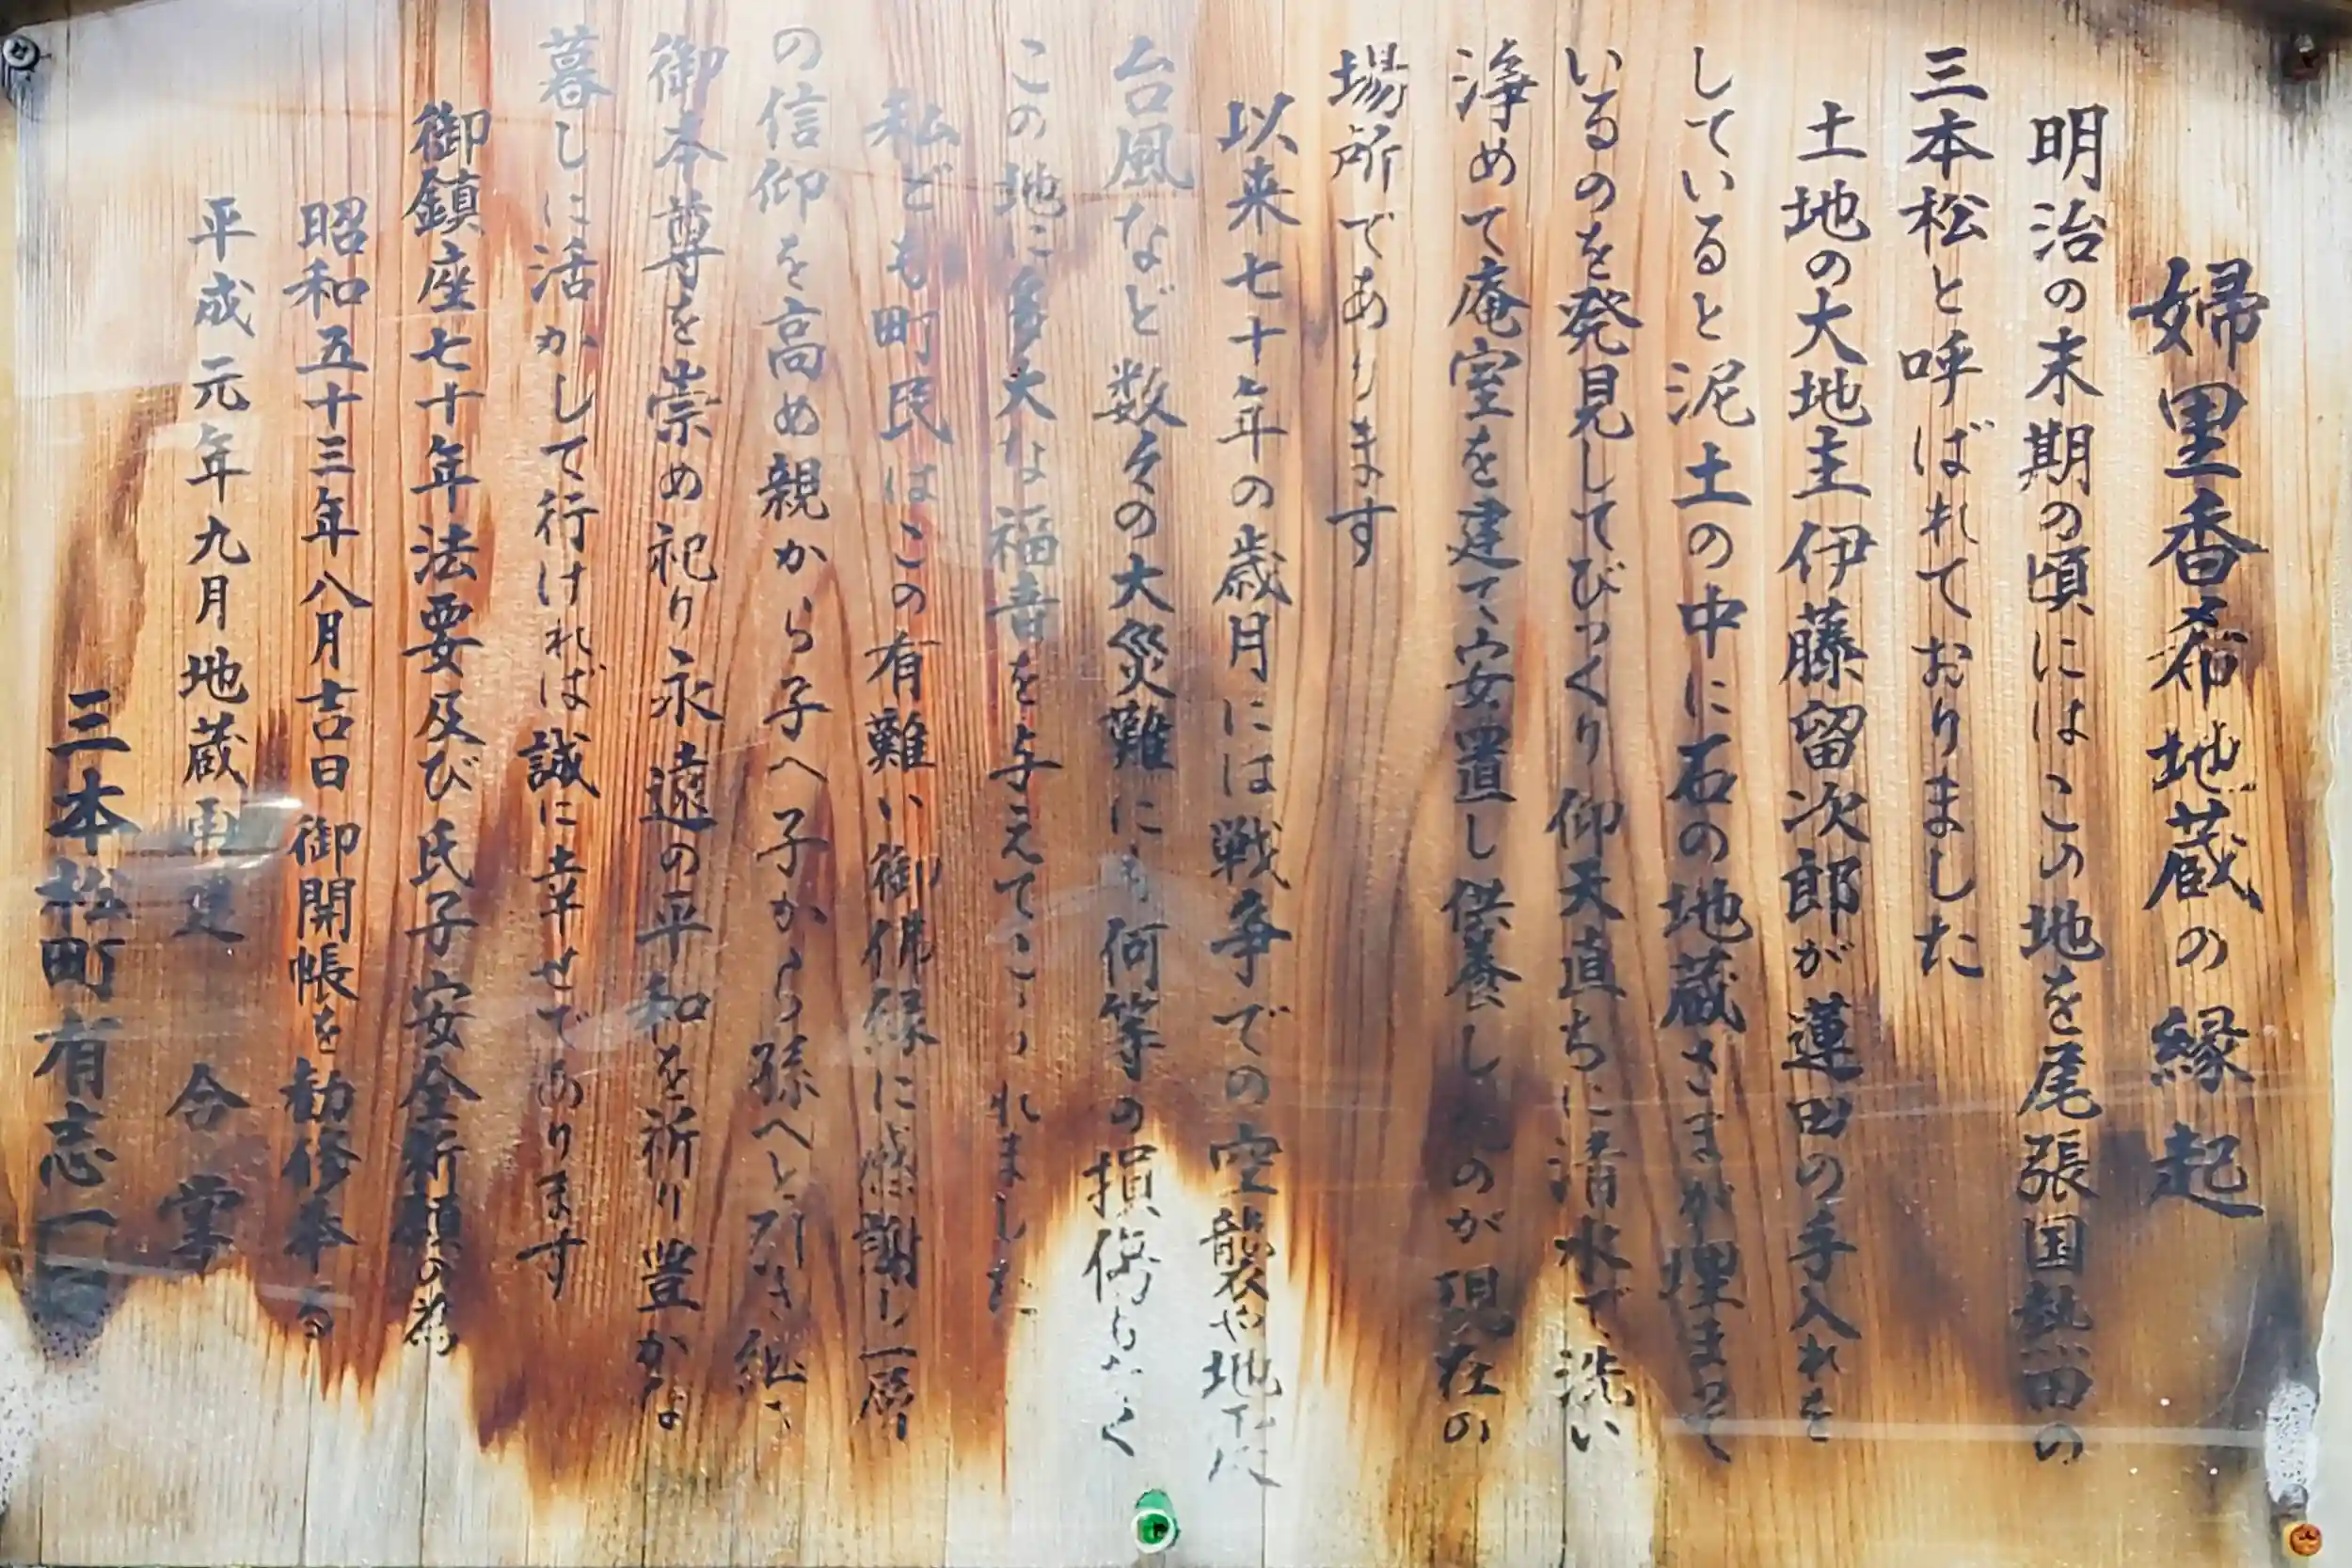 婦里香希地蔵の縁起
明治の末期の頃にはこの地を尾張国熱田の
三本松と呼ばれておりました
土地の大地主伊藤留次郎が蓮田の手入れを
していると泥土の中に石の地蔵さまが埋まって
いるのを発見してびっくり仰天直ちに清水で洗い
浄めて庵室を建て安置し供養したのが現在の
場所であります
以来七十年の歳月には戦争での空襲や地震
台風など数々の大災難にも何等の損傷もなく
この地に多大な福音を与えてこられました
私ども町民はこの有難い御佛縁に感謝し一層
の信仰を高め親から子へ子から孫へと引き継ぎ
御本尊を崇め祀り永遠の平和を祈り豊かな
暮しに活かして行ければ誠に幸せであります
御鎮座七十年法要及び氏子安全祈願の為
昭和五十三年八月吉日御開帳を勧修奉る
平成元年九月地蔵再建 合掌
三本松町有志一同